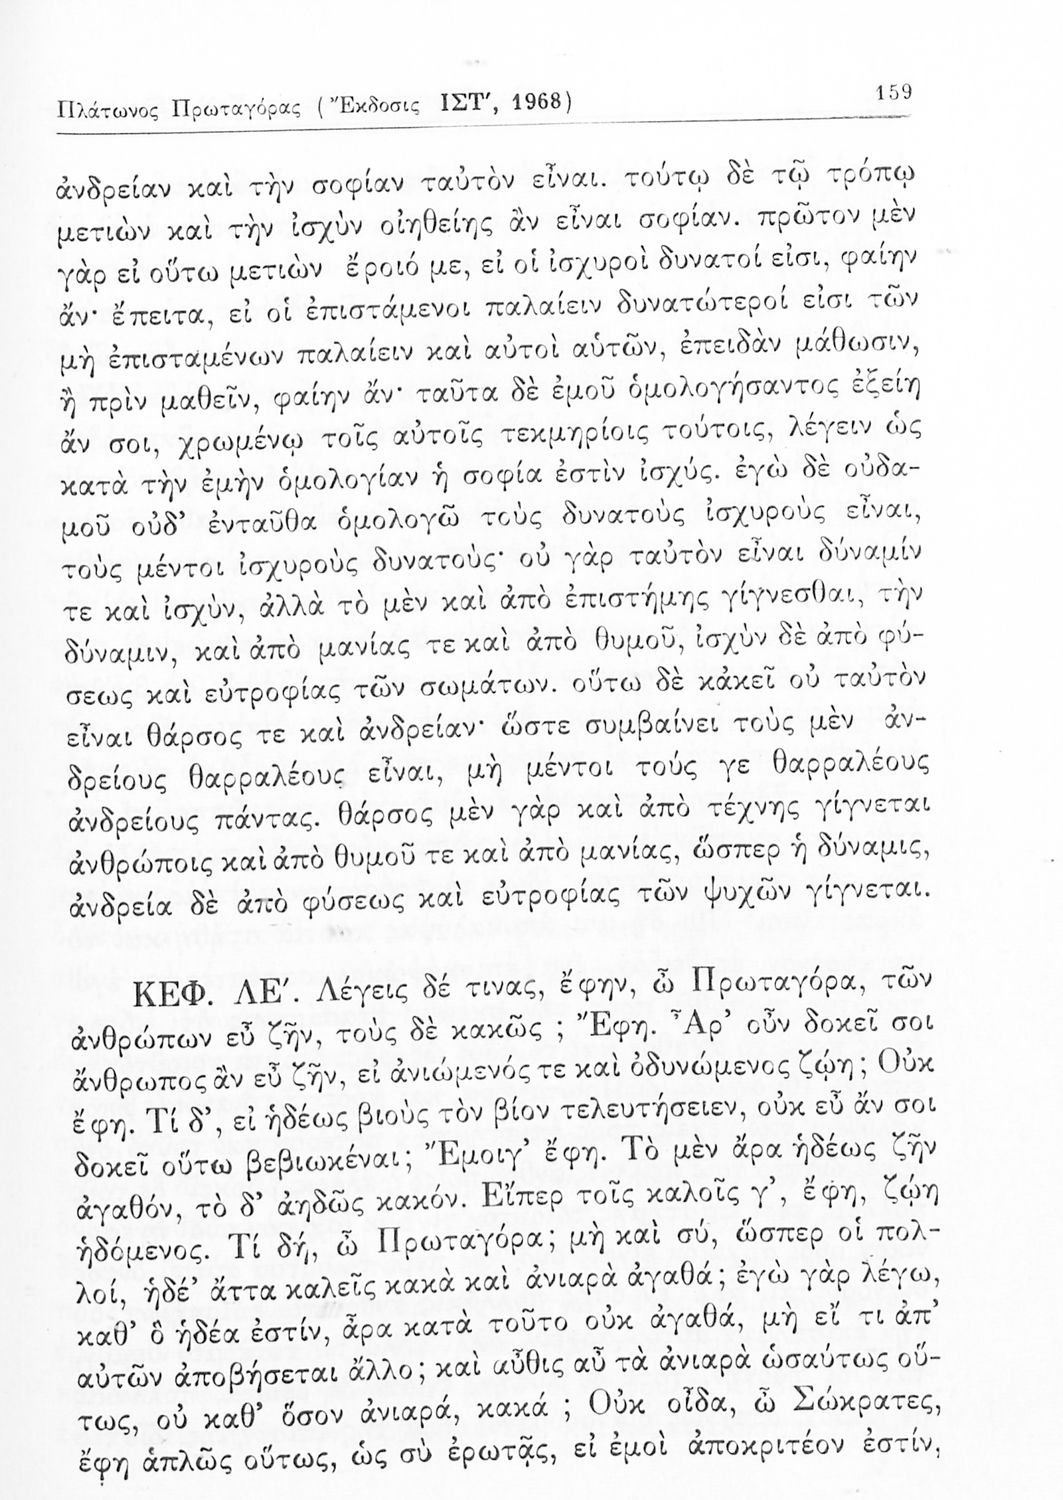 Πλάτωνος Πρωταγόρας ( Ἔκδοσις ΙΣΤ′, 1968)
159
ἀνδρείαν καὶ τὴν σοφίαν ταὐτὸν εἶναι. τούτῳ δὲ τῷ τρόπῳ
μετιὼν καὶ τὴν ἰσχὺν οἰηθείης ἂν εἶναι σοφίαν. πρῶτον μὲν
γὰρ εἰ οὕτω μετιὼν ἔροιό με, εἰ οἱ ἰσχυροὶ δυνατοί εἰσι, φαίην
ἄν· ἔπειτα, εἰ οἱ ἐπιστάμενοι παλαίειν δυνατώτεροί εἰσι τῶν
μὴ ἐπισταμένων παλαίειν καὶ αὐτοὶ αὑτῶν, ἐπειδὰν μάθωσιν,
ἢ πρὶν μαθεῖν, φαίην ἄν· ταῦτα δὲ ἐμοῦ ὁμολογήσαντος ἐξείη
ἄν σοι, χρωμένῳ τοῖς αὐτοῖς τεκμηρίοις τούτοις, λέγειν ὡς
κατὰ τὴν ἐμὴν ὁμολογίαν ἡ σοφία ἐστὶν ἰσχύς. ἐγὼ δὲ οὐδα-
μοῦ οὐδ’ ἐνταῦθα ὁμολογῶ τοὺς δυνατοὺς ἰσχυροὺς εἶναι,
τοὺς μέντοι ἰσχυροὺς δυνατούς· οὐ γὰρ ταὐτὸν εἶναι δύναμίν
τε καὶ ἰσχύν, ἀλλὰ τὸ μὲν καὶ ἀπὸ ἐπιστήμης γίγνεσθαι, τὴν
δύναμιν, καὶ ἀπὸ μανίας τε καὶ ἀπὸ θυμοῦ, ἰσχὺν δὲ ἀπὸ φύ-
σεως καὶ εὐτροφίας τῶν σωμάτων. οὕτω δὲ κἀκεῖ οὐ ταὐτὸν
εἶναι θάρσος τε καὶ ἀνδρείαν· ὥστε συμβαίνει τοὺς μὲν ἀν-
δρείους θαρραλέους εἶναι, μὴ μέντοι τούς γε θαρραλέους
ἀνδρείους πάντας. θάρσος μὲν γὰρ καὶ ἀπὸ τέχνης γίγνεται
ἀνθρώποις καὶ ἀπὸ θυμοῦ τε καὶ ἀπὸ μανίας, ὥσπερ ἡ δύναμις,
ἀνδρεία δὲ ἀπὸ φύσεως καὶ εὐτροφίας τῶν ψυχῶν γίγνεται.
ΚΕΦ. ΛΕ′. Λέγεις δέ τινας, ἔφην, ὦ Πρωταγόρα, τῶν
ἀνθρώπων εὖ ζῆν, τοὺς δὲ κακῶς ; Ἔφη. Ἆρ’ οὖν δοκεῖ σοι
ἄνθρωπος ἂν εὖ ζῆν, εἰ ἀνιώμενός τε καὶ ὀδυνώμενος ζῴη ; Οὐκ
ἔφη. Τί δ’, εἰ ἡδέως βιοὺς τὸν βίον τελευτήσειεν, οὐκ εὖ ἄν σοι
δοκεῖ οὕτω βεβιωκέναι; Ἔμοιγ’ ἔφη. Τὸ μὲν ἄρα ἡδέως ζῆν
ἀγαθόν, τὸ δ’ ἀηδῶς κακόν. Εἴπερ τοῖς καλοῖς γ’, ἔφη, ζῴη
ἡδόμενος. Τί δή, ὦ Πρωταγόρα; μὴ καὶ σύ, ὥσπερ οἱ πολ-
λοί, ἡδέ’ ἄττα καλεῖς κακὰ καὶ ἀνιαρὰ ἀγαθά; ἐγὼ γὰρ λέγω,
καθ’ ὃ ἡδέα ἐστίν, ἆρα κατὰ τοῦτο οὐκ ἀγαθά, μὴ εἴ τι ἀπ’
αὐτῶν ἀποβήσεται ἄλλο; καὶ αὖθις αὖ τὰ ἀνιαρὰ ὡσαύτως οὕ-
τως, οὐ καθ’ ὅσον ἀνιαρά, κακά ; Οὐκ οἶδα, ὦ Σώκρατες,
ἔφη ἁπλῶς οὕτως, ὡς σὺ ἐρωτᾷς, εἰ ἐμοὶ ἀποκριτέον ἐστίν,